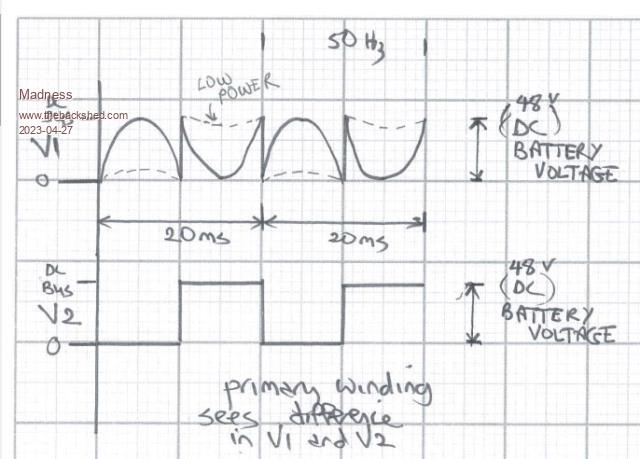 50 Hz
LOW
POWER
Madness
DC
www.thebackshed.com
2023-04-27
V1
0
48V
(DC)
BATTERY
VOLTAGE
20ms
20ms
DC
BUS
V2
0
48V
(DC)
BATTERY
VOLTAGE
primary winding
sees difference
in V1 and V2